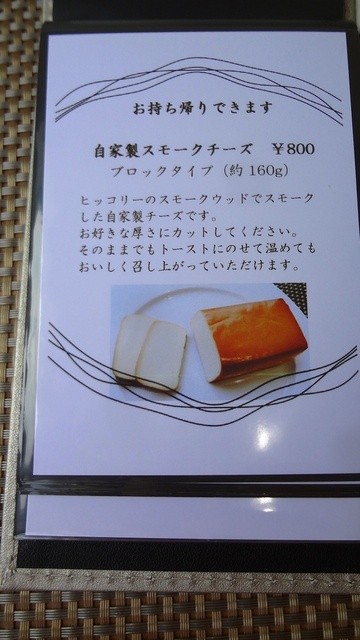 お持ち帰りできます
自家製スモークチーズ　￥800
ブロックタイプ（約 160g）
ヒッコリーのスモークウッドでスモーク
した自家製チーズです。
お好きな厚さにカットしてください。
そのままでもトーストにのせて温めても
おいしく召し上がっていただけます。